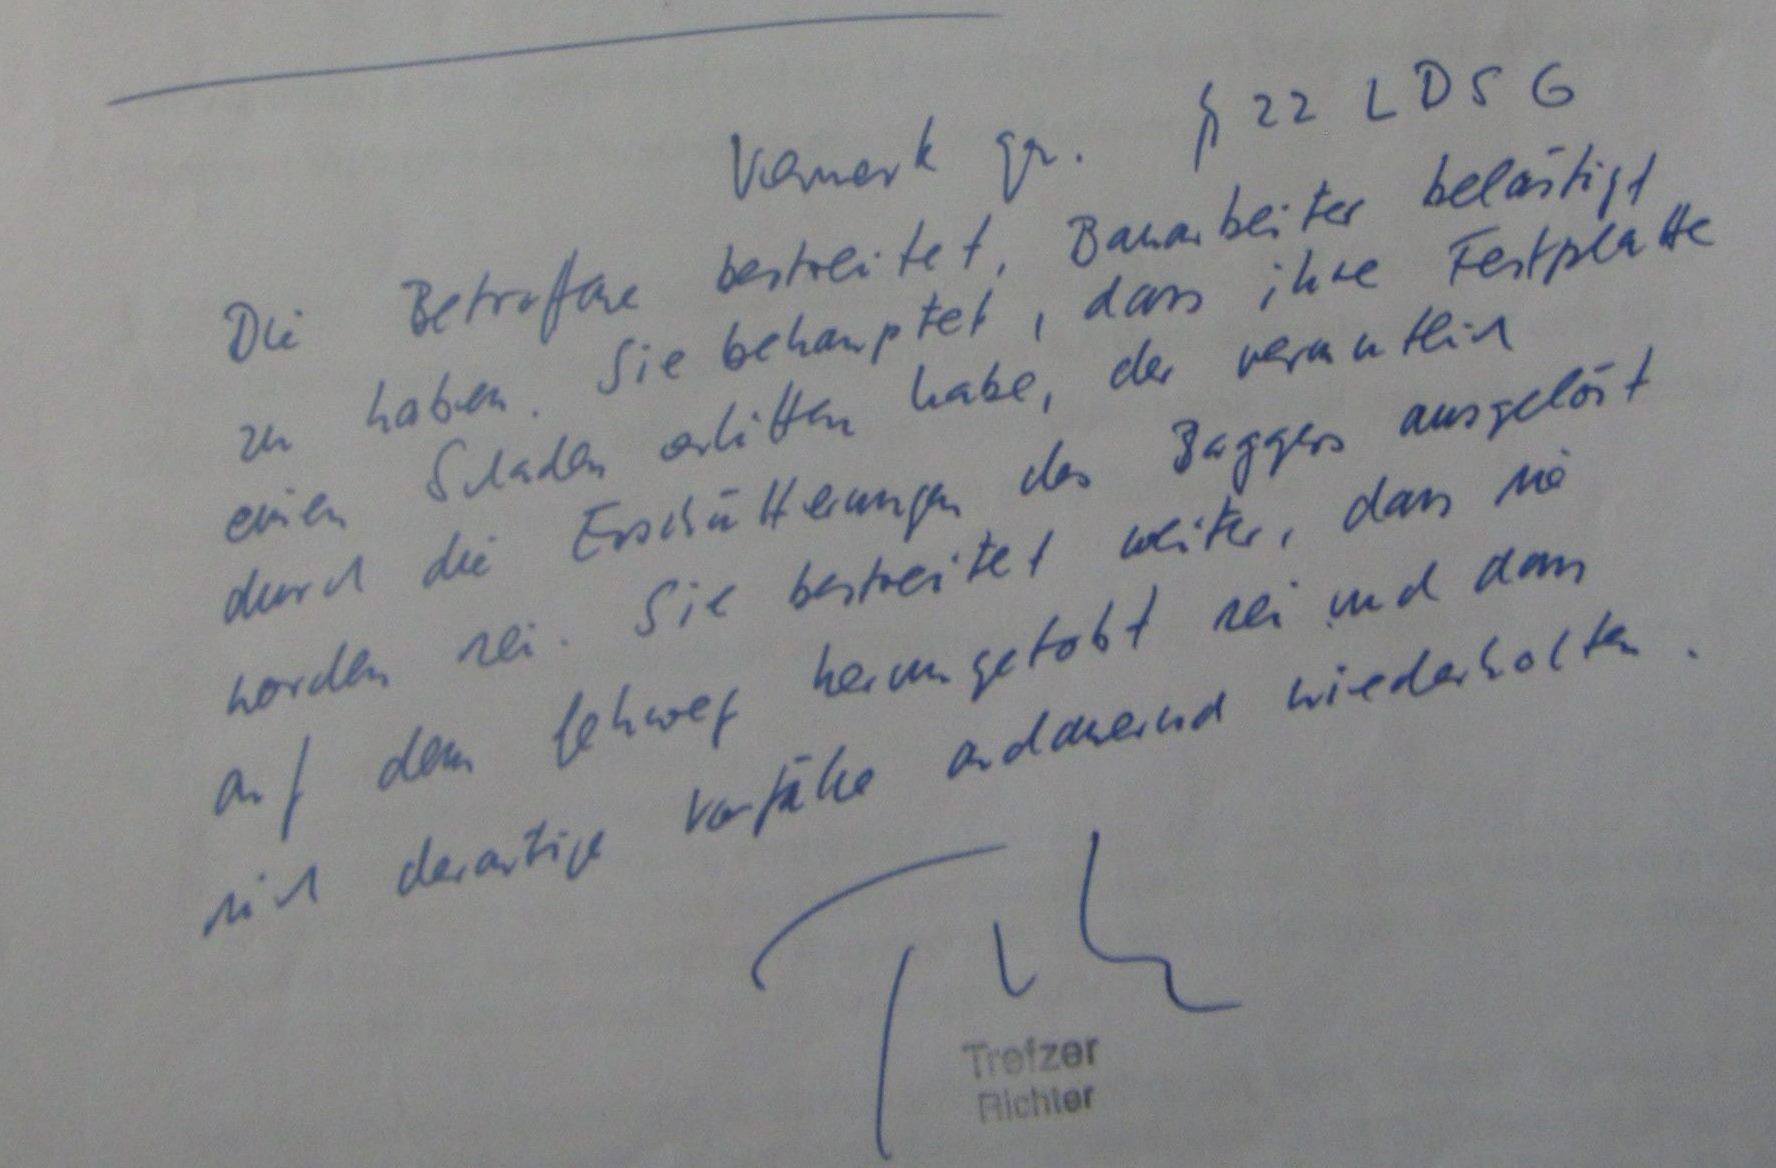 Vermerk gr. § 22 LDSG
Die Betroffene bestreitet, Bauarbeiter belästigt
zu haben. Sie behauptet, dass ihre Festplatte
einen Schaden erlitten habe, der vermutlich
durch die Erschütterungen des Baggers ausgelöst
worden sei. Sie bestreitet weiter, dass sie
auf dem Gehweg herumgetobt sei und dass
sich derartige Vorfälle andauernd wiederholten.
Trefzer
Richter